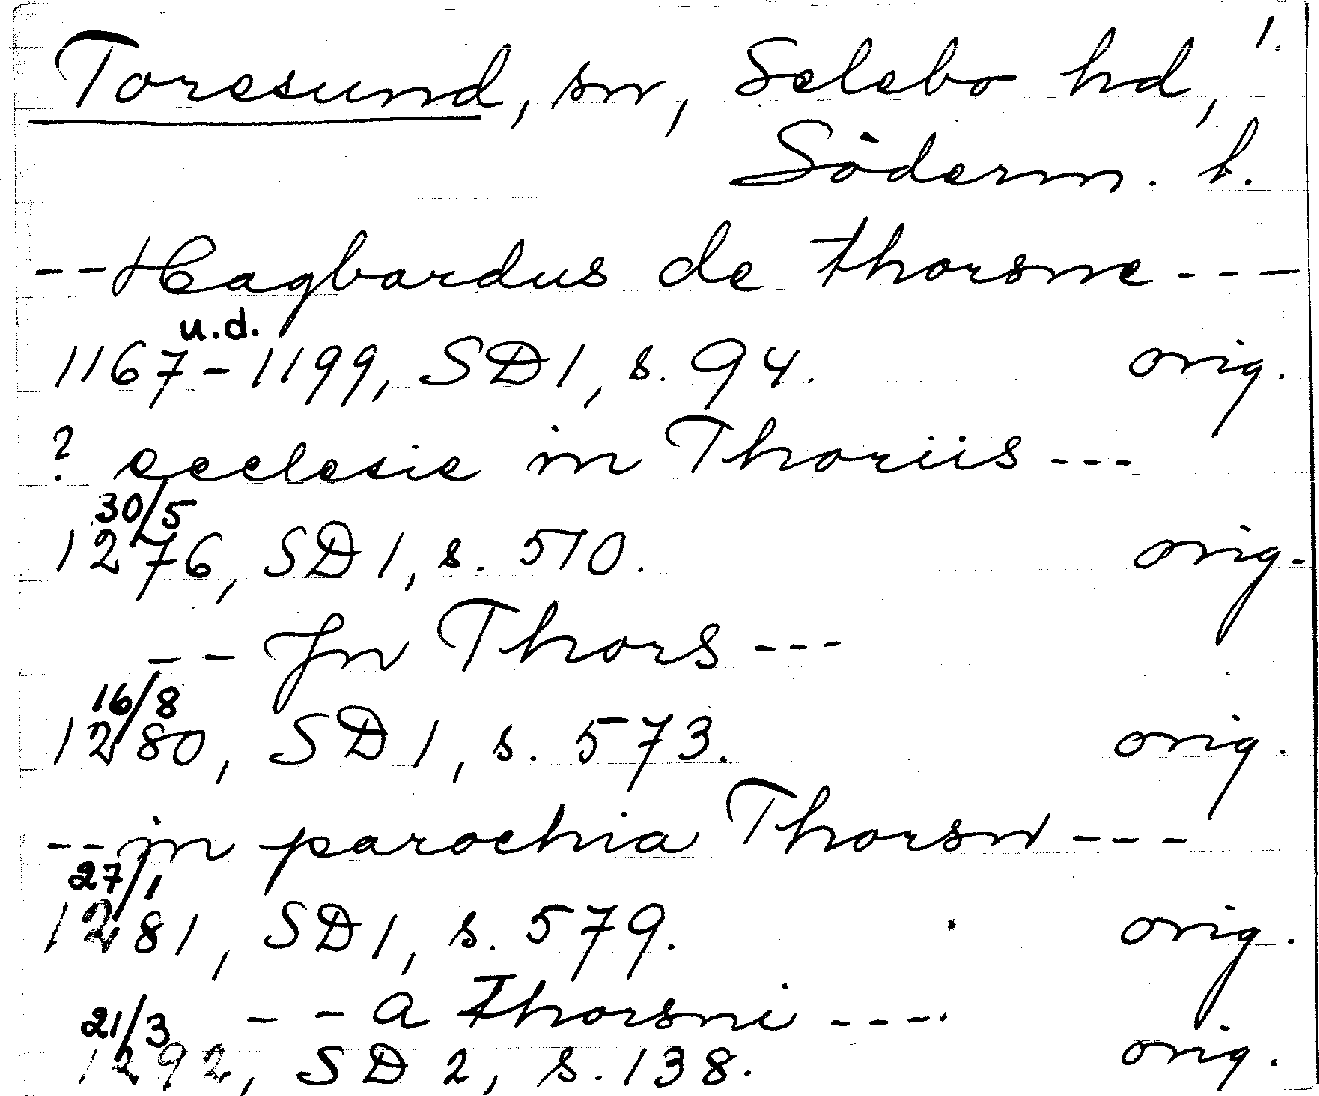 1.
Toresund, sn, Selebo hd,
Söderm. l.
-- Hagbardus de Thorsne ---
u.d.
1167-1199, SD 1, s. 94. orig.
? ecclesie in Thoriis ---
30/5
1276, SD 1, s. 510. orig.
-- Jn Thors ---
16/8
1280, SD 1, s. 573. orig.
-- in parochia Thorsn ---
27/1
1281, SD 1, s. 579. orig.
-- a Thorsni ----
21/3
1292, SD 2, s. 138. orig.